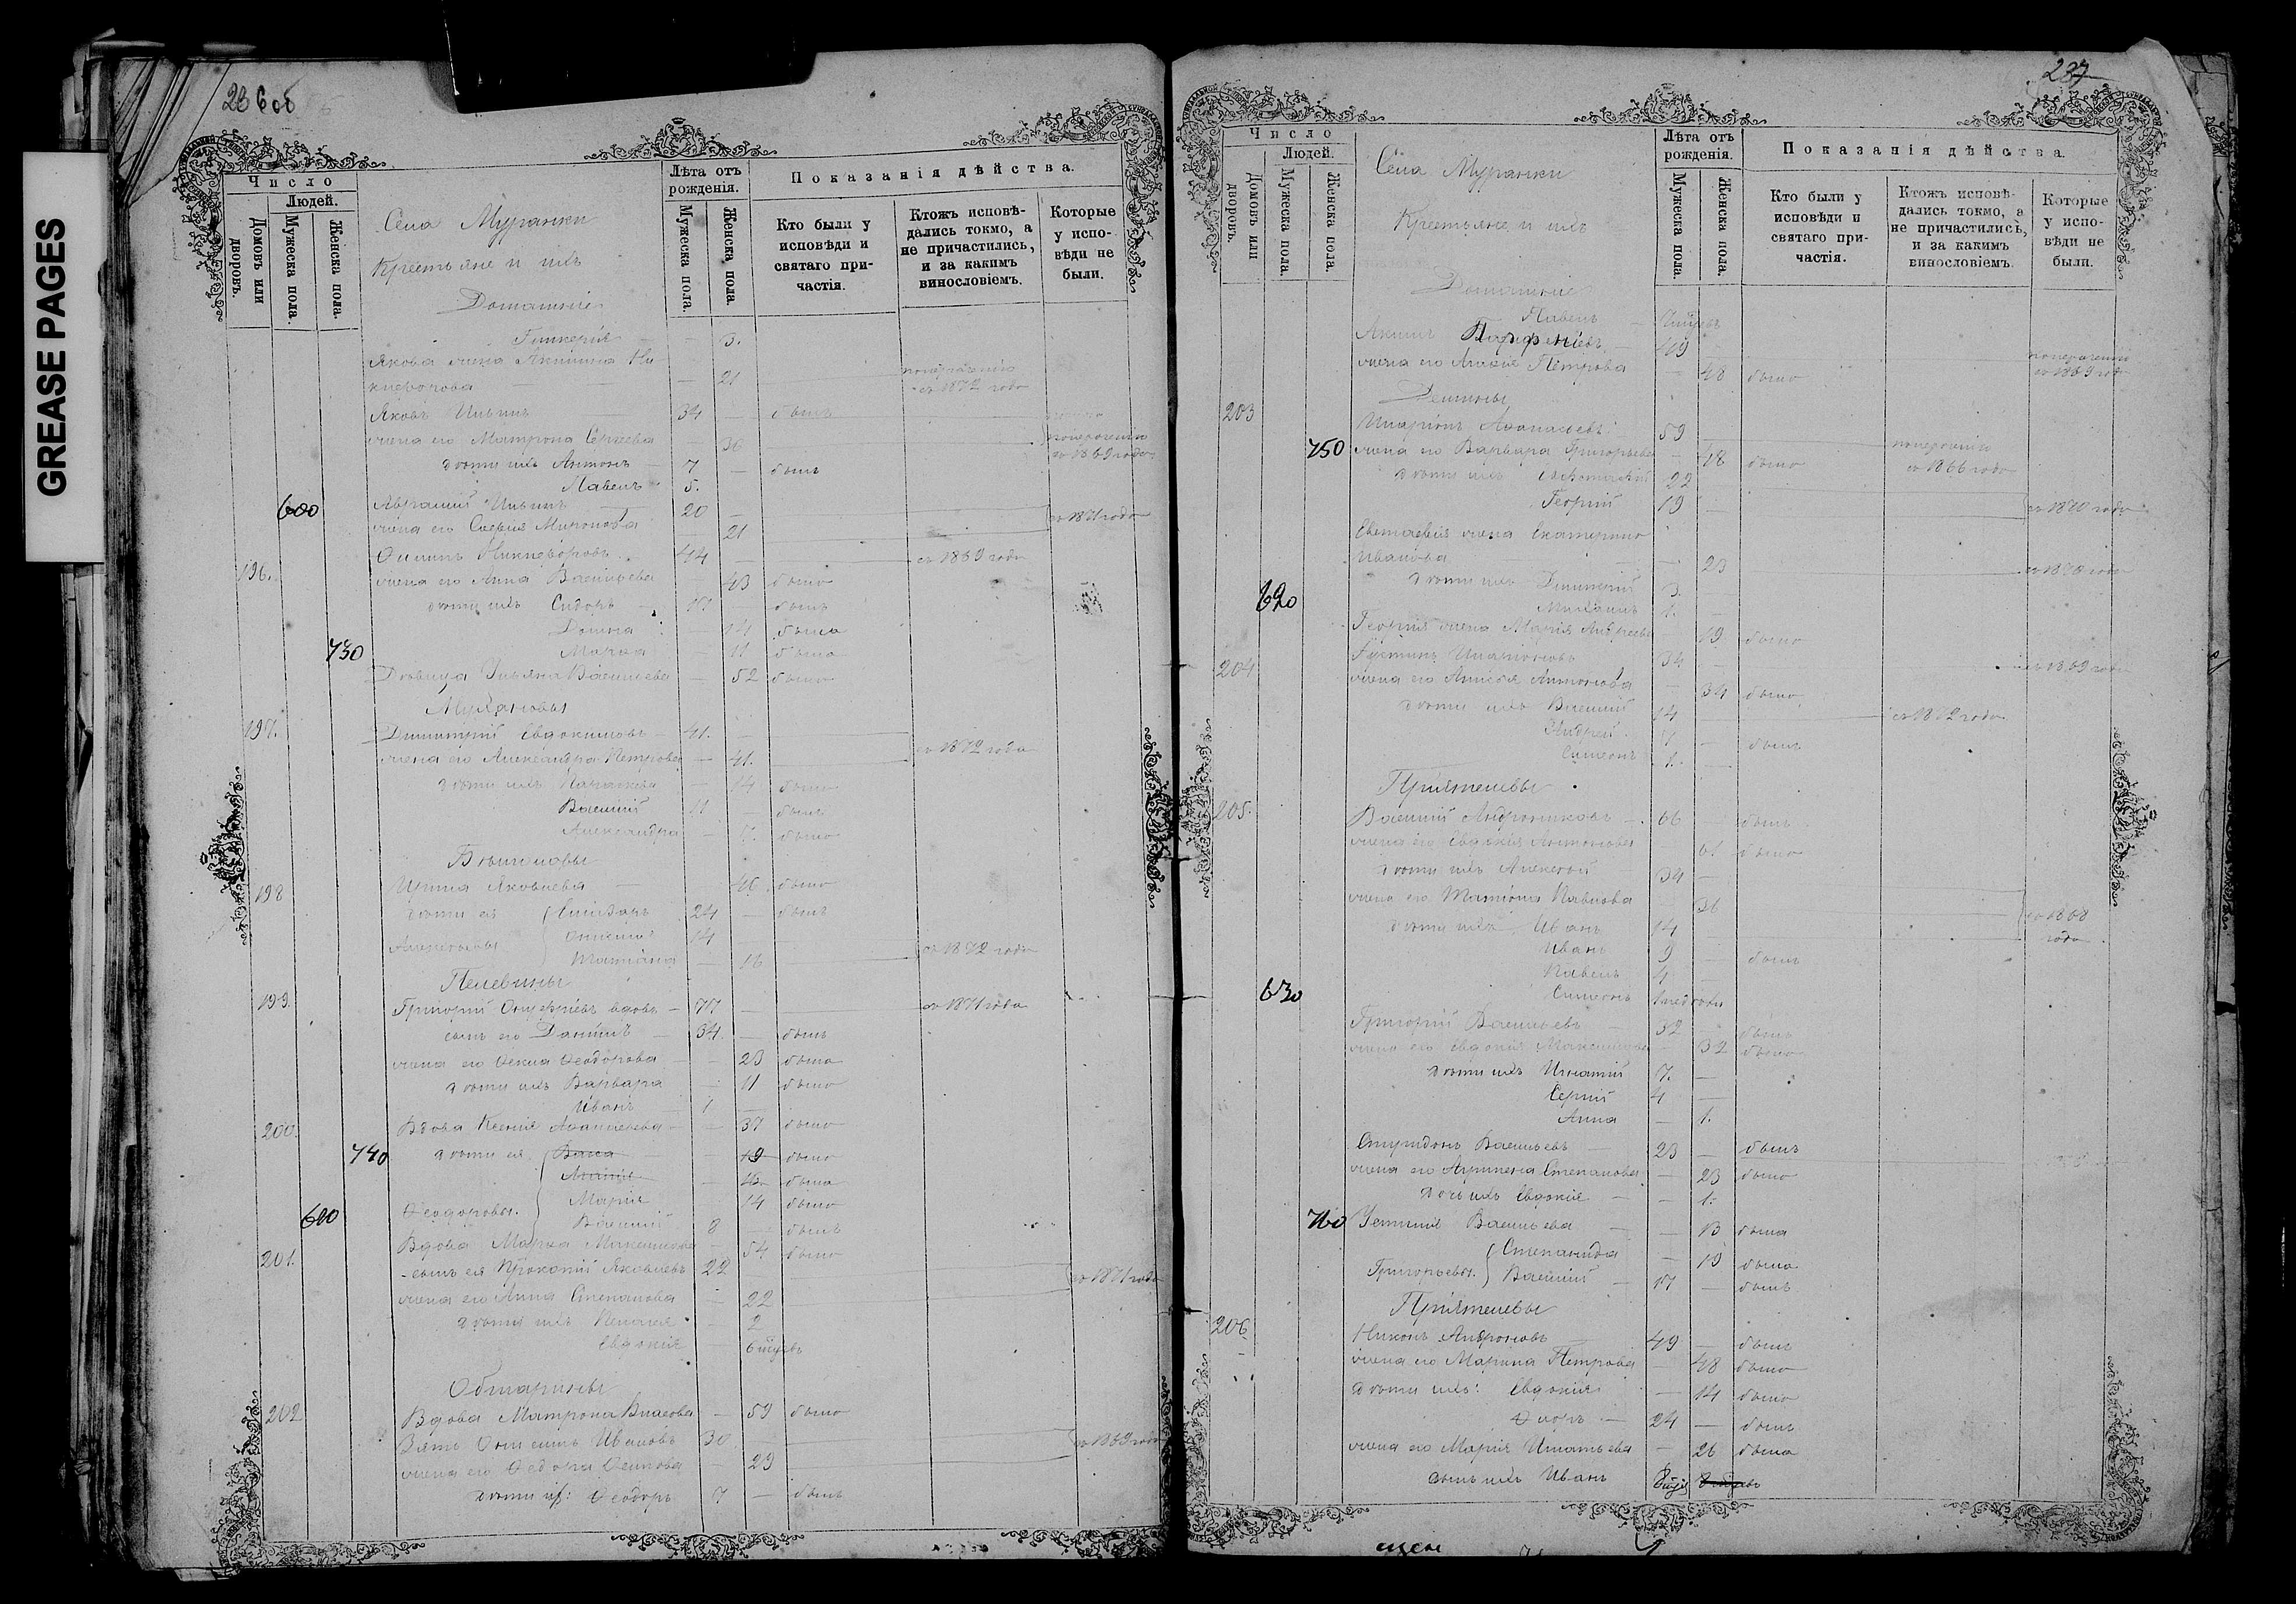 GREASE PAGES
236 об
Число
Людей.
Домовъ или дворовъ.
Мужеска пола.
Женска пола.
Села Муранки
Крестьяне и ихъ
Домашніе
Лѣта отъ рожденія.
Мужеска пола.
Женска пола.
Показанія дѣйства.
Кто были у исповѣди и святаго причастія.
Ктожъ исповѣдались токмо, а не причастились, и за какимъ винословіемъ.
Которые у исповѣди не были.
Гликерія 3.
Якова жена Акилина Никифорова 21 съ 1872 года
Яковъ Ильинъ 34 былъ
жена его Матрона Сергеева 36 съ 1869 года
дѣти ихъ Антонъ 7 былъ
Павелъ 5.
600 Авраамій Ильинъ 20 съ 1871 года
жена его Миронова 21
196. Филипъ Никифоровъ 44 съ 1869 года
жена его Анна Васильева 43 была
дѣти ихъ Сидоръ 17 былъ
Домна 14 была
730 Марѳа 11 была
Дѣвица Ульяна Васильева 52 была
197. Димитрій Евдокимовъ 41.
жена его Александра Петрова 41. съ 1872 года
дѣти ихъ Параскева 14 была
Василій 11 былъ
Александра 7. была
198 Ирина Яковлева 46. была
дѣти ея 24 былъ
Алексѣевы 14
Татіана 16 съ 1872 года
Пелевины
199. Григорій Онуфріевъ вдовъ 77 съ 1871 года
сынъ его Даніилъ 34. былъ
жена его Ѳекла Ѳеодорова 23 была
дѣти ихъ Варвара 11 была
Иванъ 1
200. Вдова Ксенія Аѳанасьева 37 была
740 дѣти ея 19 была
была
Марія 14 была
610 Ѳеодоровы. Василій 8 былъ
201. Вдова Марѳа Максимова 54 была
сынъ ея Прокопій Яковлевъ 22 съ 1871 года
жена его Анна Степанова 22
дѣти ихъ Пелагія 2
Евдокія 6 мѣсяцевъ
202 Вдова Матрона Власова 59 была
Зять Онисимъ Ивановъ 30 съ 1869 года
жена его Ѳедора Осипова 29
дѣти их: Ѳеодоръ 7 былъ
237
Число
Людей.
Домовъ или дворовъ.
Мужеска пола.
Женска пола.
Села Муранки
Крестьяне и ихъ
Домашніе
Лѣта отъ рожденія.
Мужеска пола.
Женска пола.
Показанія дѣйства.
Кто были у исповѣди и святаго причастія.
Ктожъ исповѣдались токмо, а не причастились, и за какимъ винословіемъ.
Которые у исповѣди не были.
Павелъ
Акимъ Парфеніевъ 49
жена его Петрова 48 была съ 1869 года
Демины
203 Иларіонъ Аѳанасьевъ 59
750 жена его Варвара Григорьева 48 была съ 1866 года
дѣти ихъ Евстафій 22
Георгій 19 съ 1870 года
Евстафія жена Екатерина
Иванова 23 съ 1870 года
дѣти ихъ Димитрій 3.
620 Михаилъ 1.
Георгія жена Марія Андреева 19 была
204 Іустинъ Иларіоновъ 34 съ 1869 года
жена его Анисія Антонова 34 была
дѣти ихъ Василій 14 съ 1872 года
Андрей 7 былъ
Симеонъ 1.
Пріятелевы
205. Василій Андрониковъ 66 былъ
жена его Евдокія Антонова 61 была
дѣти ихъ Алексѣй 34
жена его Татіана Павлова 36 съ 1868 года
дѣти ихъ Иванъ 14
Иванъ 9 былъ
Павелъ 4
630 Симеонъ
Григорій Васильевъ 32 былъ
жена его Евдокія Максимова 32 была
дѣти ихъ Игнатій 7.
Сергій 4
Анна 1.
Спиридонъ Васильевъ 23 былъ
жена его Агрипена Степанова 23 была
дочь ихъ Евдокія 1.
760 Устинія Васильева 13 была
Степанида 19 была
Григорьевы. Василій 17 былъ
Пріятелевы
206. Никонъ Андроновъ 49 былъ
жена его Марина Петрова 48 была
дѣти ихъ: Евдокія 14 была
Флоръ 24 былъ
жена его Марія Игнатьева 26 была
сынъ ихъ Иванъ